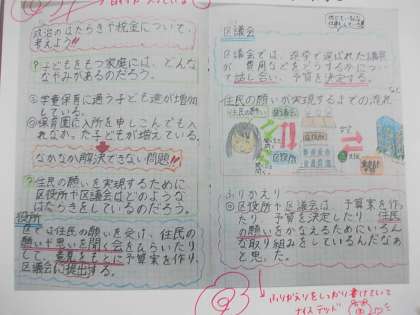 政治のはたらきや税金について、
考えよう!!
？子どもをもつ家庭には、どんな
なやみがあるのだろう。
①学童保育に通う子ども達が増加
している。
②保育園に入所を申しこんでも入
れなかった子どもが増えている。
なかなか解決できない問題!!
？住民の願いを実現するために
区役所や区議会はどのような
はたらきをしているのだろう。
役所
区では住民の願いを受け、住民の
願いや思いを聞く会をひらいたり
して、意見をもとに予算案を作り、
区議会に提出する。
区議会
区議会では、選挙で選ばれた議員
が、費用などをどうするかについ
て話し合い、予算を決定する。
住民の願いが実現するまでの流れ
住民の願い
区議会
区役所
区役所
ふりかえり
◎区役所や区議会は、予算案を作っ
たり、予算を決定したり、住民
の願いをかなえるためにいろん
な取り組みをしているんだなぁ
と思った。
ふりかえりをしっかり書けていて